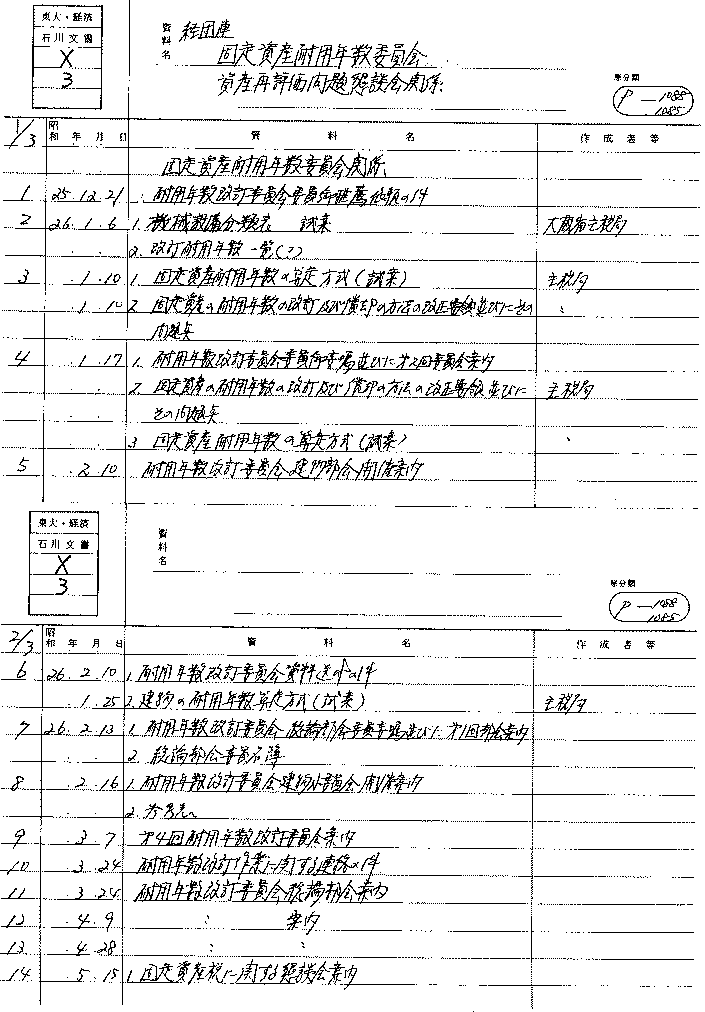 東大・経済
石川文書
X
3
資料名
経団連
固定資産耐用年数委員会
資産再評価問題懇談会関係
原分類
P-1088
1085
1/3 昭和 年 月 日 資料名 作成者等
固定資産耐用年数委員会関係
1 25.12.21 耐用年数改訂委員会委員御推薦依頼の件
2 26.1.6 1.機械設備分類表 試案 大蔵省主税局
2.改訂耐用年数一覧(?)
3 .1.10 1. 固定資産耐用年数の算定方式(試案) 主税局
.1.10 2. 固定資産の耐用年数の改訂及び償却の方法の改正要綱並びにその 〃
問題点
4 .1.17 1. 耐用年数改訂委員会委員御委嘱並びに第2回委員会案内
2. 固定資産の耐用年数の改訂及び償却の方法の改正要綱並びに 主税局
その問題点
3. 固定資産耐用年数の算定方式(試案) 〃
5 .2.10 耐用年数改訂委員会建物部会開催案内
東大・経済
石川文書
X
3
資料名
原分類
P-1088
1085
2/3 昭和 年 月 日 資料名 作成者等
6 26.2.10 1.耐用年数改訂委員会資料送付の件
.1.25 2.建物の耐用年数算定方式(試案) 主税局
7 26.2.13 1.耐用年数改訂委員会総論部会委員委嘱並びに第1回部会案内
2. 総論部会委員名簿
8 .2.16 1.耐用年数改訂委員会建物小委員会開催案内
2.
9 .3.7 第4回耐用年数改訂委員会案内
10 .3.24 耐用年数改訂作業に関する連絡の件
11 .3.24 耐用年数改訂委員会総論部会案内
12 .4.9 〃 案内
13 .4.28 〃 〃
14 .5.15 1.固定資産税に関する懇談会案内